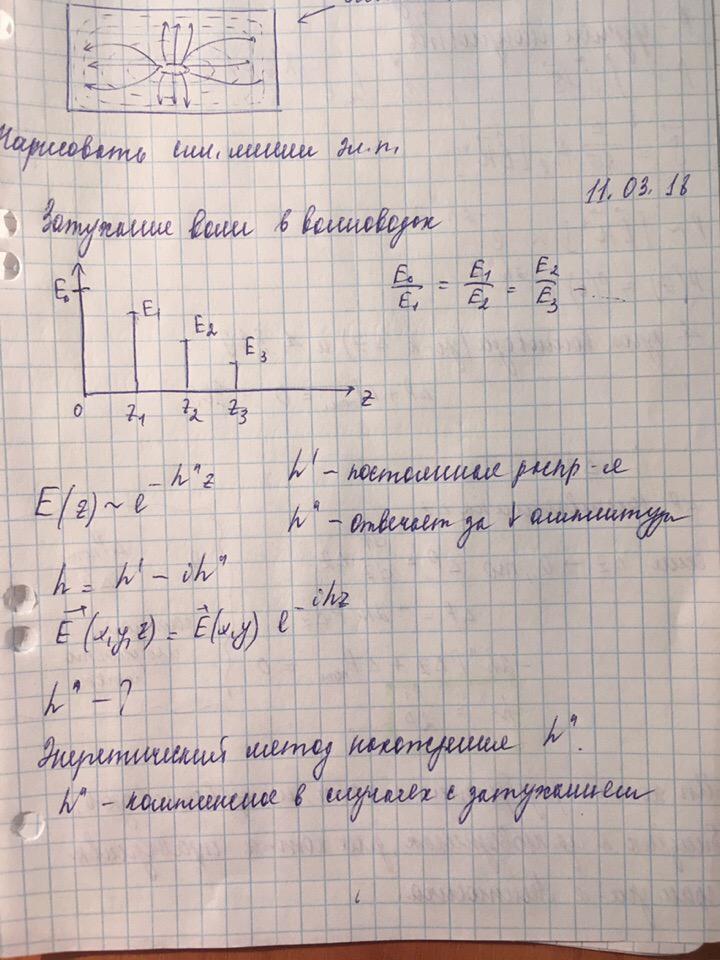 Нарисовать сил. линии эл.п.
11.03.18
Затухание волн в волноводах
E₀/E₁ = E₁/E₂ = E₂/E₃ = .....
E₀
E₁
E₂
E₃
0 z₁ z₂ z₃ z
E(z) ~ e^{-h"z}
h' - постоянная распр-я
h" - отвечает за ↓ амплитуды
h = h' - ih"
E⃗(x,y,z) = E⃗(x,y) e^{-ihz}
h" - ?
Энергетический метод нахождения h".
h" - комплексное в случаях с затуханием